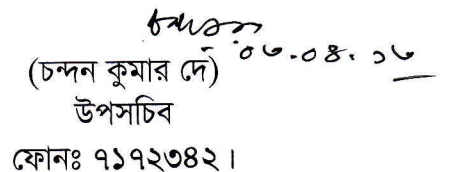 ০৩.০৪.১৩
(চন্দন কুমার দে)
উপসচিব
ফোনঃ ৭১৭২৩৪২।